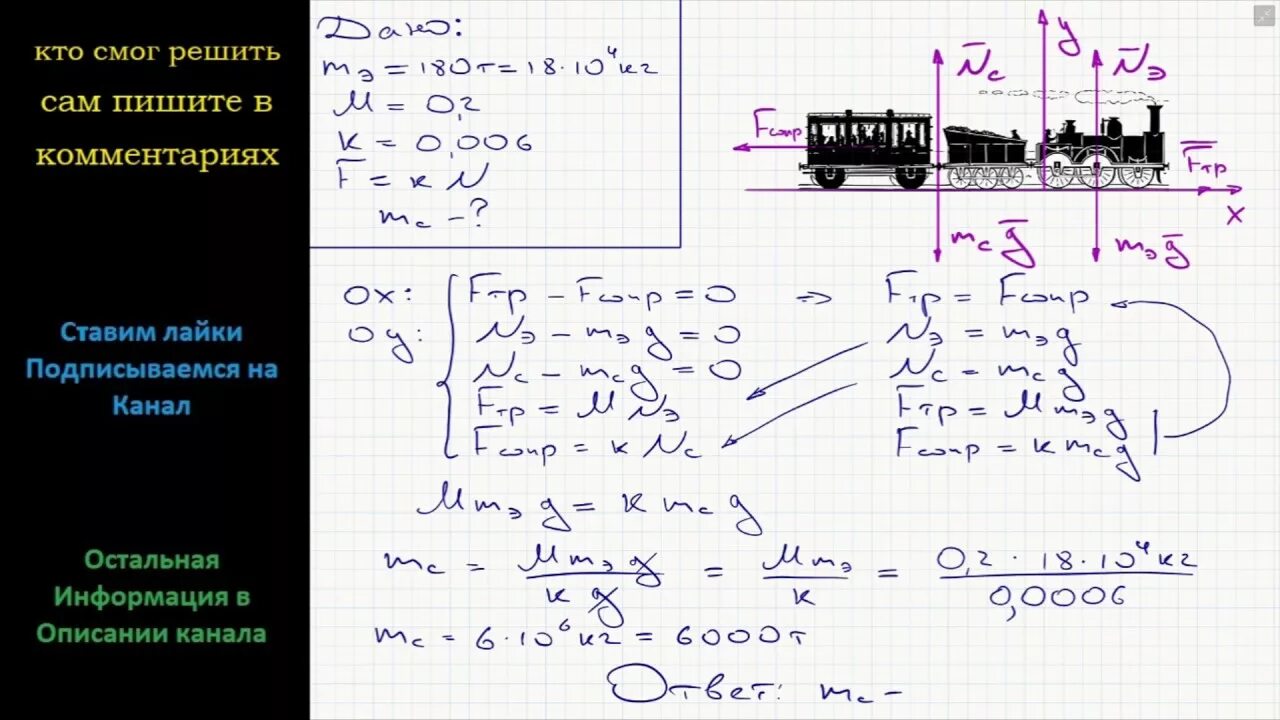 кто смог решить
сам пишите в
комментариях
Ставим лайки
Подписываемся на
Канал
Остальная
Информация в
Описании канала
Дано:
mэ = 180т = 18·10⁴кг
μ = 0,2
k = 0,006
F̅ = k N
mс - ?
y
N̅с
N̅э
Fсопр
F̅тр
x
mс g̅
mэ g̅
Ox: Fтр - Fсопр = 0 => Fтр = Fсопр
Oy: Nэ - mэ g = 0 Nэ = mэ g
Nс - mс g = 0 Nс = mс g
Fтр = μ Nэ Fтр = μ mэ g
Fсопр = k Nс Fсопр = k mс g
μ mэ g = k mс g
mс = μ mэ g / k g = μ mэ / k = 0,2 · 18·10⁴кг / 0,0006
mс = 6·10⁶кг = 6000т
Ответ: mс =